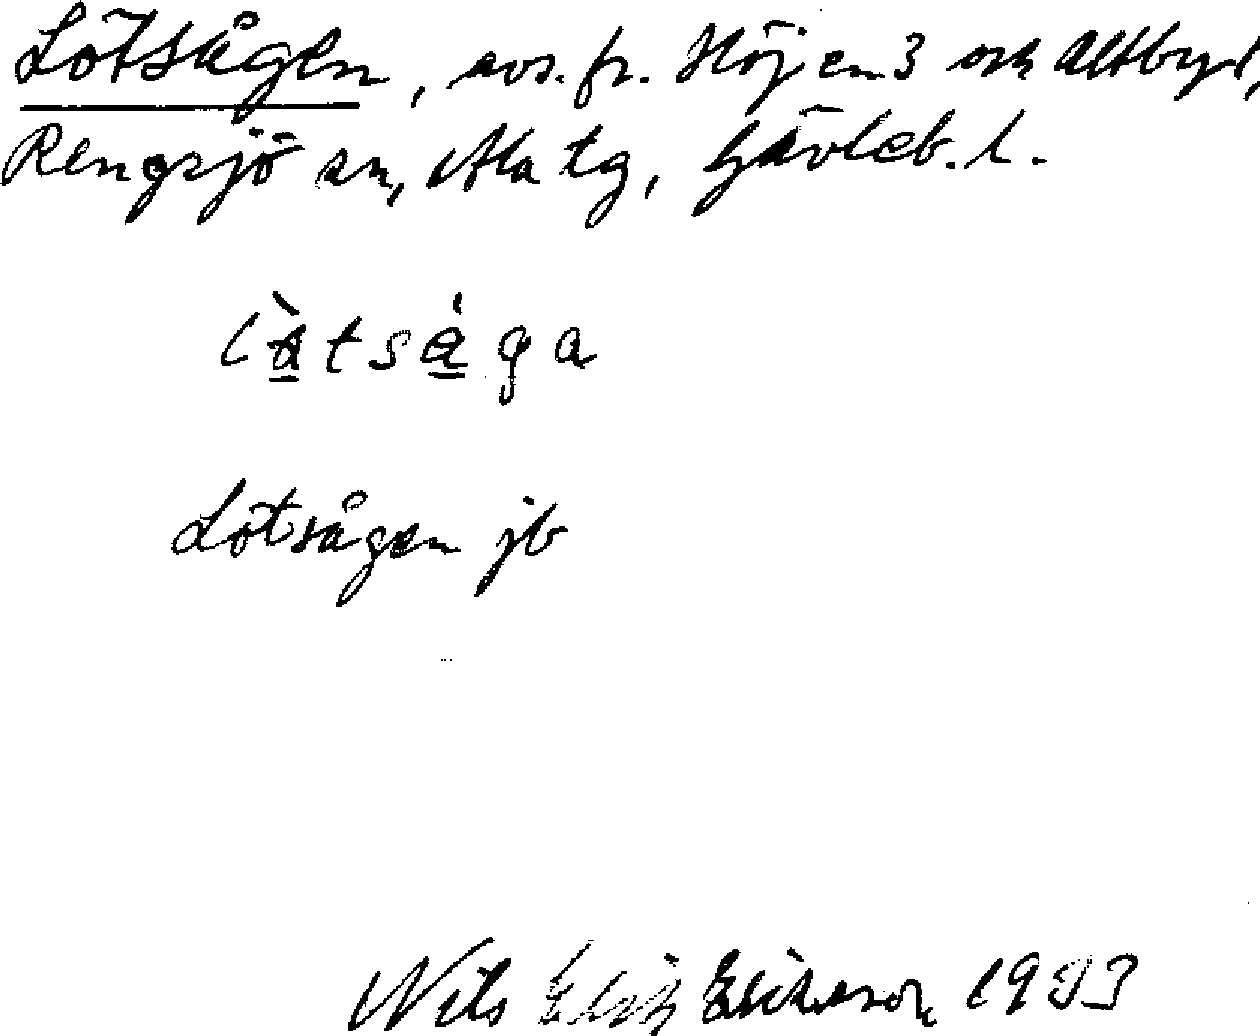 Lötsågen, avs. fr. Höjen 3 och Altbyd,
Rengsjö sn, Ala tg, Gävleb. l.
làtsȧga
Lötsågen jb
Nils Erik Erikson, 1933